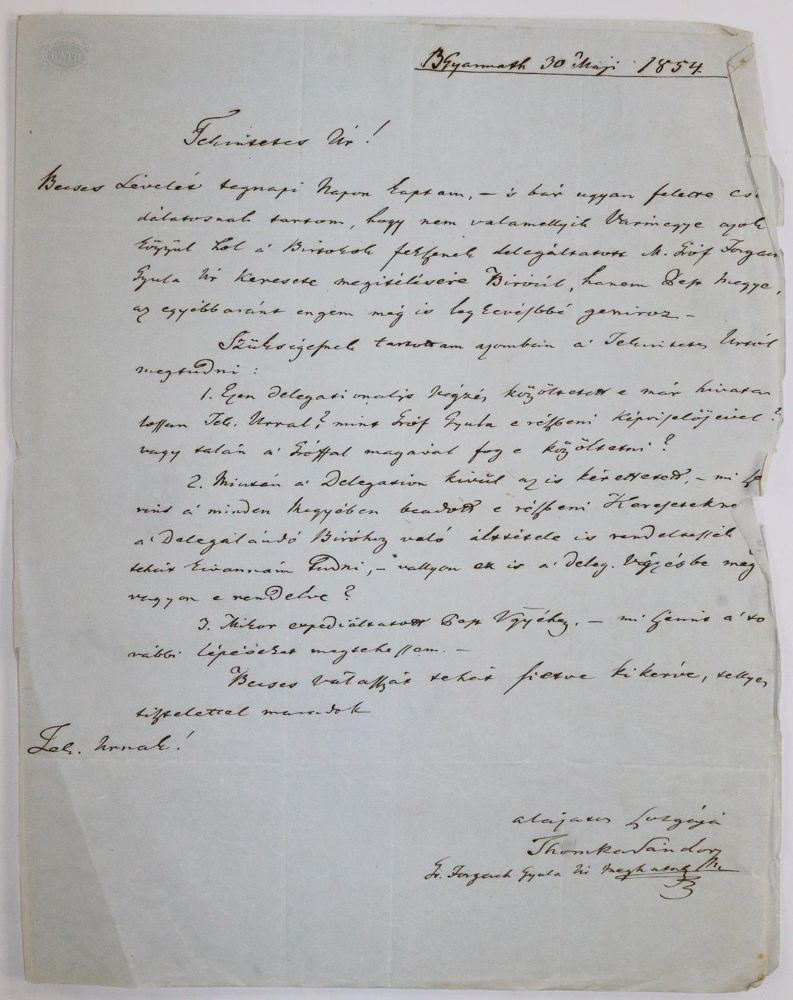 BATH
BGyarmath 30 Maji 1854.
Tekintetes Úr!
Becses Levelét tegnapi Napon kaptam, – 's bár ugyan felette cso
dálatosnak tartom, hogy nem valamellyik Varmegye azok
közzül hol a' Birtokok feksenek delegáltatott M. Gróf Forgach
Gyula Úr keresete megitélésére Biróúl, hanem Pest Megye,
az egyébbaránt engem még is legkevésbbé geniroz –
Szükségesnek tartottam azomban a' Tekintetes Urtól
megtudni:
1. Ezen delegationalis Végzés közöltetett e már hivata
lossan Tek. Urral? mint Gróf Gyula e részbeni képviselőjével?
vagy talán a' Gróffal magával fog e közöltetni?
2. Miután a' Delegation kivűl az is kéretett, – mi sze
rint a' minden Megyében beadott e részbeni Keresetekne
a' Delegálandó Biróhoz való áttétele is rendeltessék
tehát kivánnám tudni, – vallyon ez is a' deleg. Végzésbe meg
vagyon e rendelve?
3. Mikor expediáltatott Pest – mi szerint a' to
vábbi lépéseket megtehessem. –
Becses válasszát tehát fizetve kikérve, tellyes
tisztelettel maradok
Tek. Urnak!
alázatos szolgája
Thomka Sándor
Gr. Forgach Gyula Úr